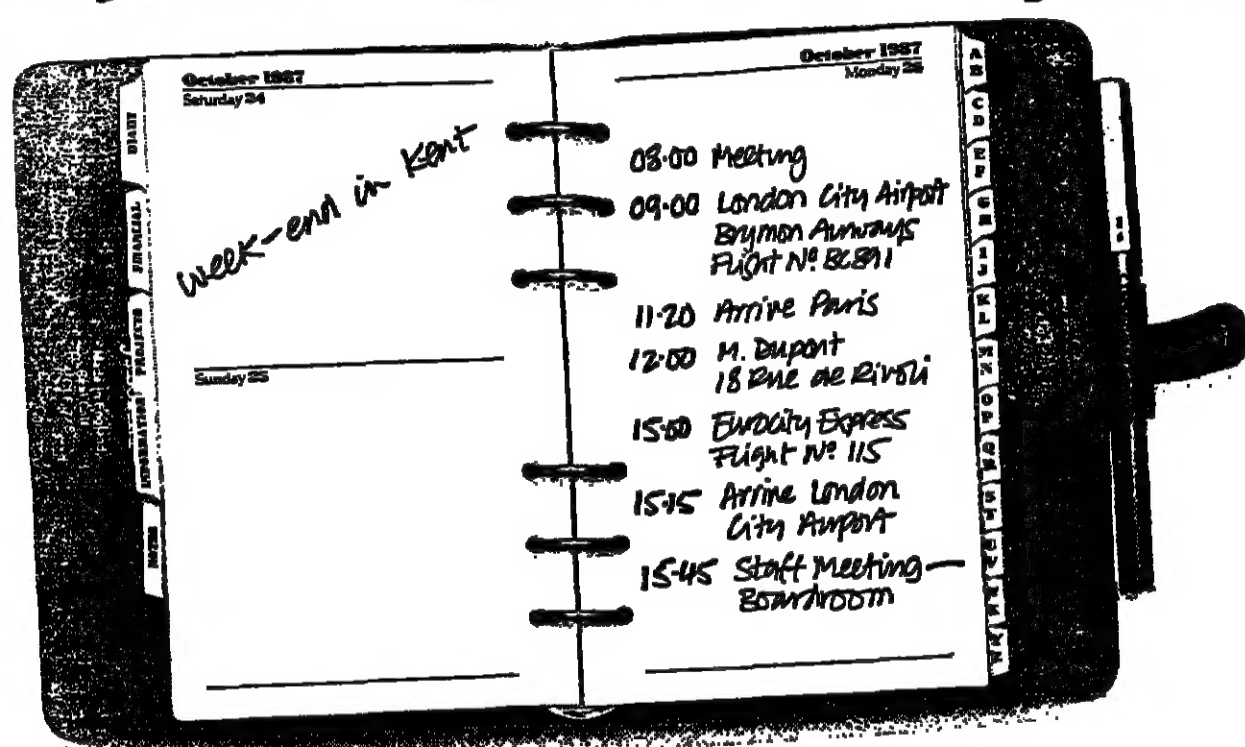 October 1987
Saturday 24
week-end in Kent
Sunday 25
DIARY
FINANCIAL
PROJECTS
INFORMATION
NOTES
October 1987
Monday 26
08·00 Meeting
09·00 London City Airport
Brymon Airways
Flight Nº BC891
11·20 Arrive Paris
12·00 M. Dupont
18 Rue de Rivoli
15·00 Eurocity Express
Flight Nº 115
15·15 Arrive London
City Airport
15·45 Staff Meeting —
Boardroom
AB
CD
EF
GH
IJ
KL
MN
OP
QR
ST